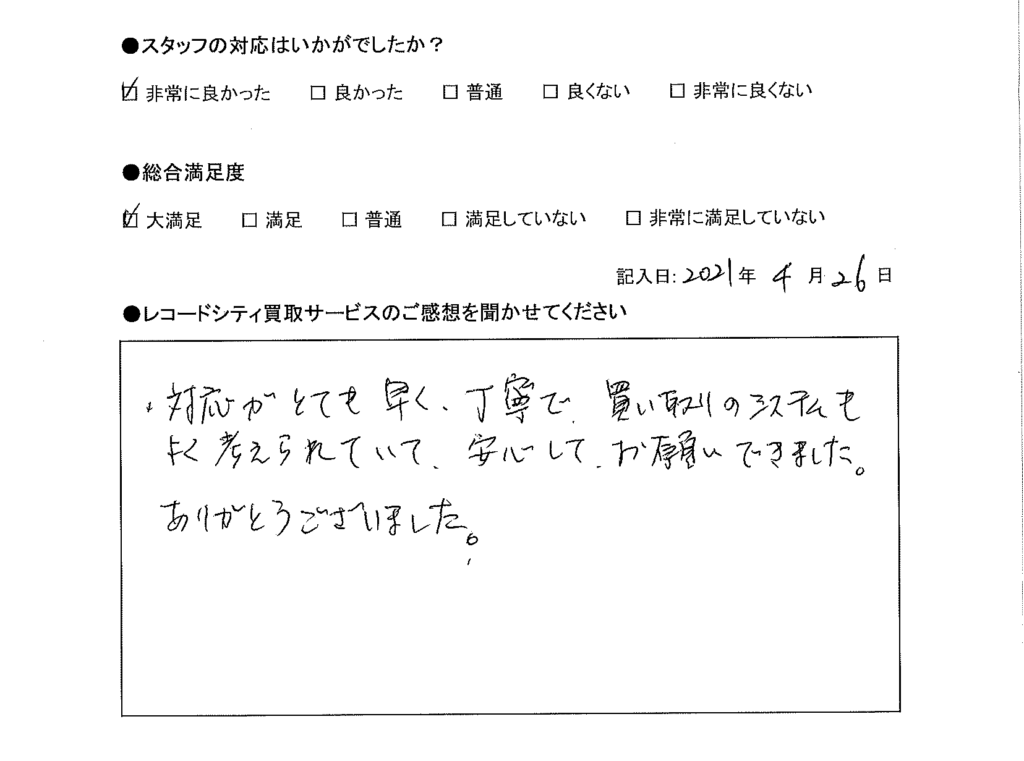 ●スタッフの対応はいかがでしたか？
☑ 非常に良かった □ 良かった □ 普通 □ 良くない □ 非常に良くない
●総合満足度
☑ 大満足 □ 満足 □ 普通 □ 満足していない □ 非常に満足していない
記入日: 2021年 4月 26日
●レコードシティ買取サービスのご感想を聞かせてください
・対応がとても早く、丁寧で、買い取りのシステムも
よく考えられていて、安心して、お願いできました。
ありがとうございました。